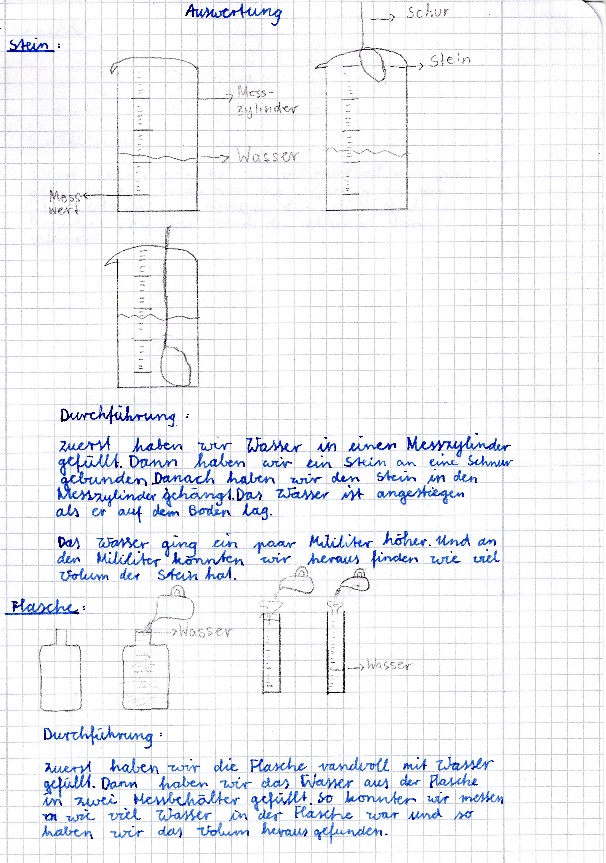 Auswertung
Schur
Stein:
Stein
Mess-
zylinder
Wasser
Mess
wert
Durchführung:
zuerst haben wir Wasser in einen Messzylinder
gefüllt. Dann haben wir ein Stein an eine Schnur
gebunden. Danach haben wir den Stein in den
Messzylinder gehängt. Das Wasser ist angestiegen
als er auf dem Boden lag.
Das Wasser ging ein paar Mililiter höher. Und an
den Mililiter konnten wir heraus finden wie viel
Volum der Stein hat.
Flasche:
Wasser
Wasser
Durchführung:
zuerst haben wir die Flasche vandvoll mit Wasser
gefüllt. Dann haben wir das Wasser aus der Flasche
in zwei Messbehälter gefüllt. So konnter wir messen
wie viel Wasser in der Flasche war und so
haben wir das Volum heraus gefunden.